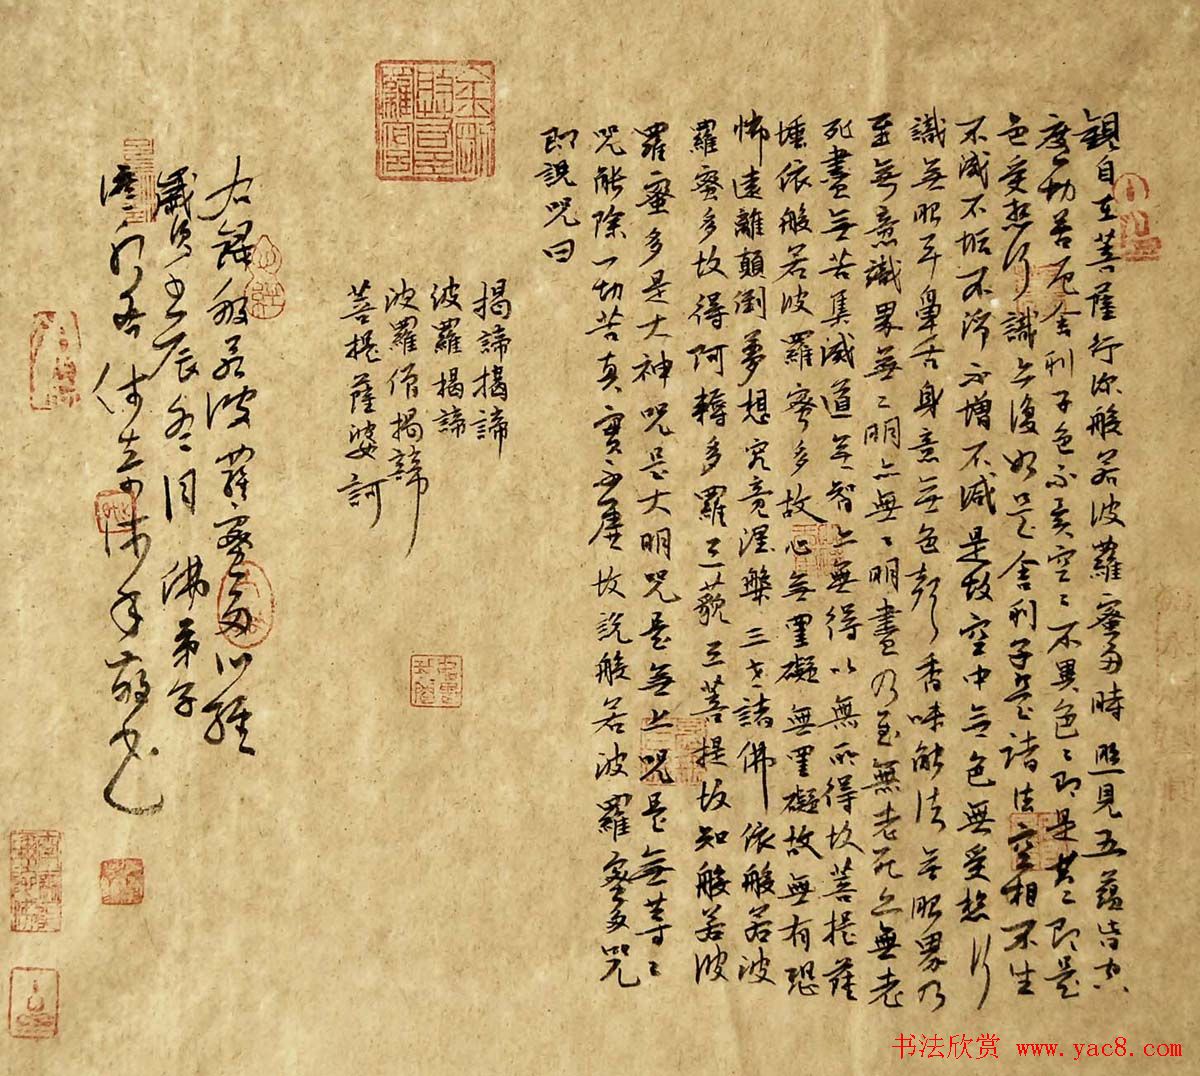 觀自在菩薩行深般若波羅蜜多時照見五蘊皆空
度一切苦厄舍利子色不異空〻不異色〻即是空〻即是
色受想行識亦復如是舍利子是諸法空相不生
不滅不垢不淨不增不減是故空中無色無受想行
識無眼耳鼻舌身意無色聲香味觸法無眼界乃
至無意識界無〻明亦無〻明盡乃至無老死亦無老
死盡無苦集滅道無智亦無得以無所得故菩提薩
埵依般若波羅蜜多故心無罣礙無罣礙故無有恐
怖遠離顛倒夢想究竟涅槃三世諸佛依般若波
羅蜜多故得阿耨多羅三藐三菩提故知般若波
羅蜜多是大神咒是大明咒是無上咒是無等〻
咒能除一切苦真實不虛故說般若波羅蜜多咒
即說咒曰
揭諦揭諦
波羅揭諦
波羅僧揭諦
菩提薩婆訶
右錄般若波羅蜜多心經
歲次壬辰冬月 佛弟子
敬書
书法欣赏 www.yac8.com